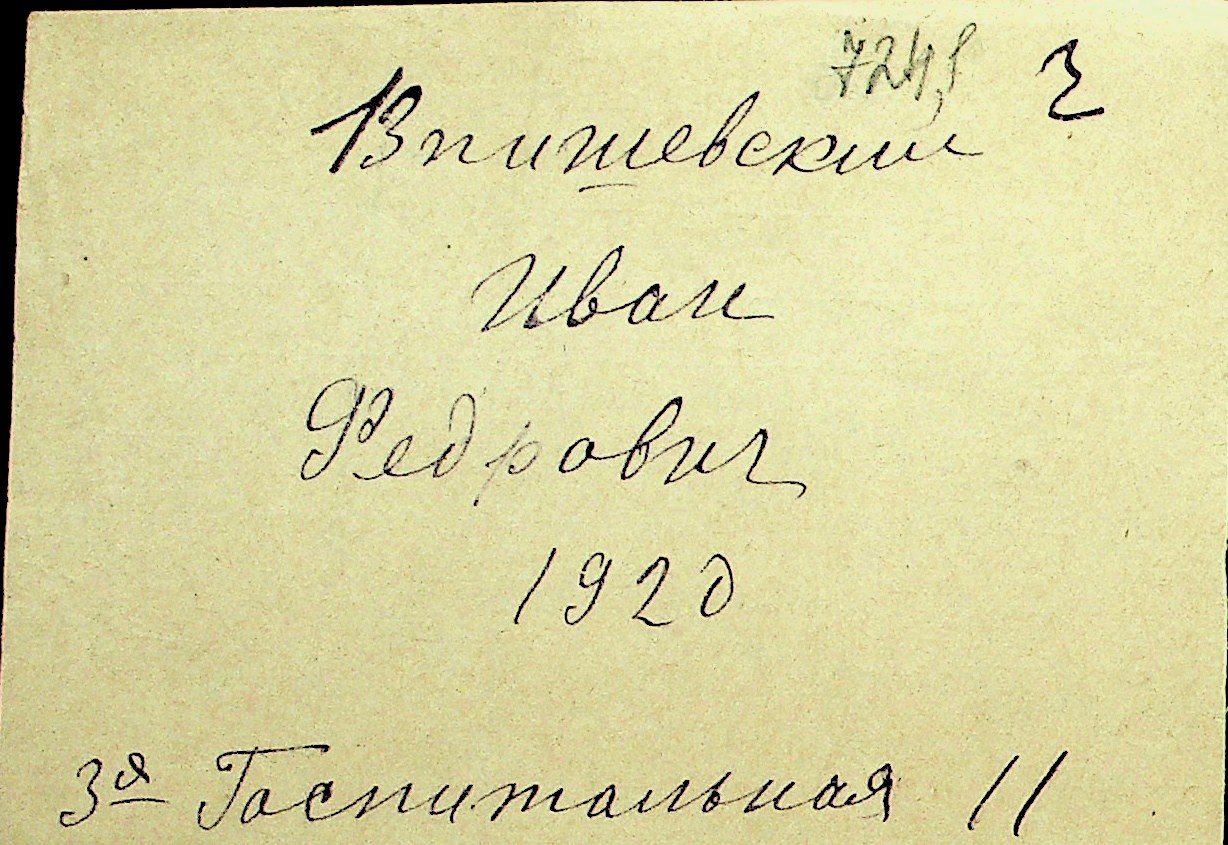 724,8 2
Впишевский
Иван
Федрович
1920
3я Госпитальная 11